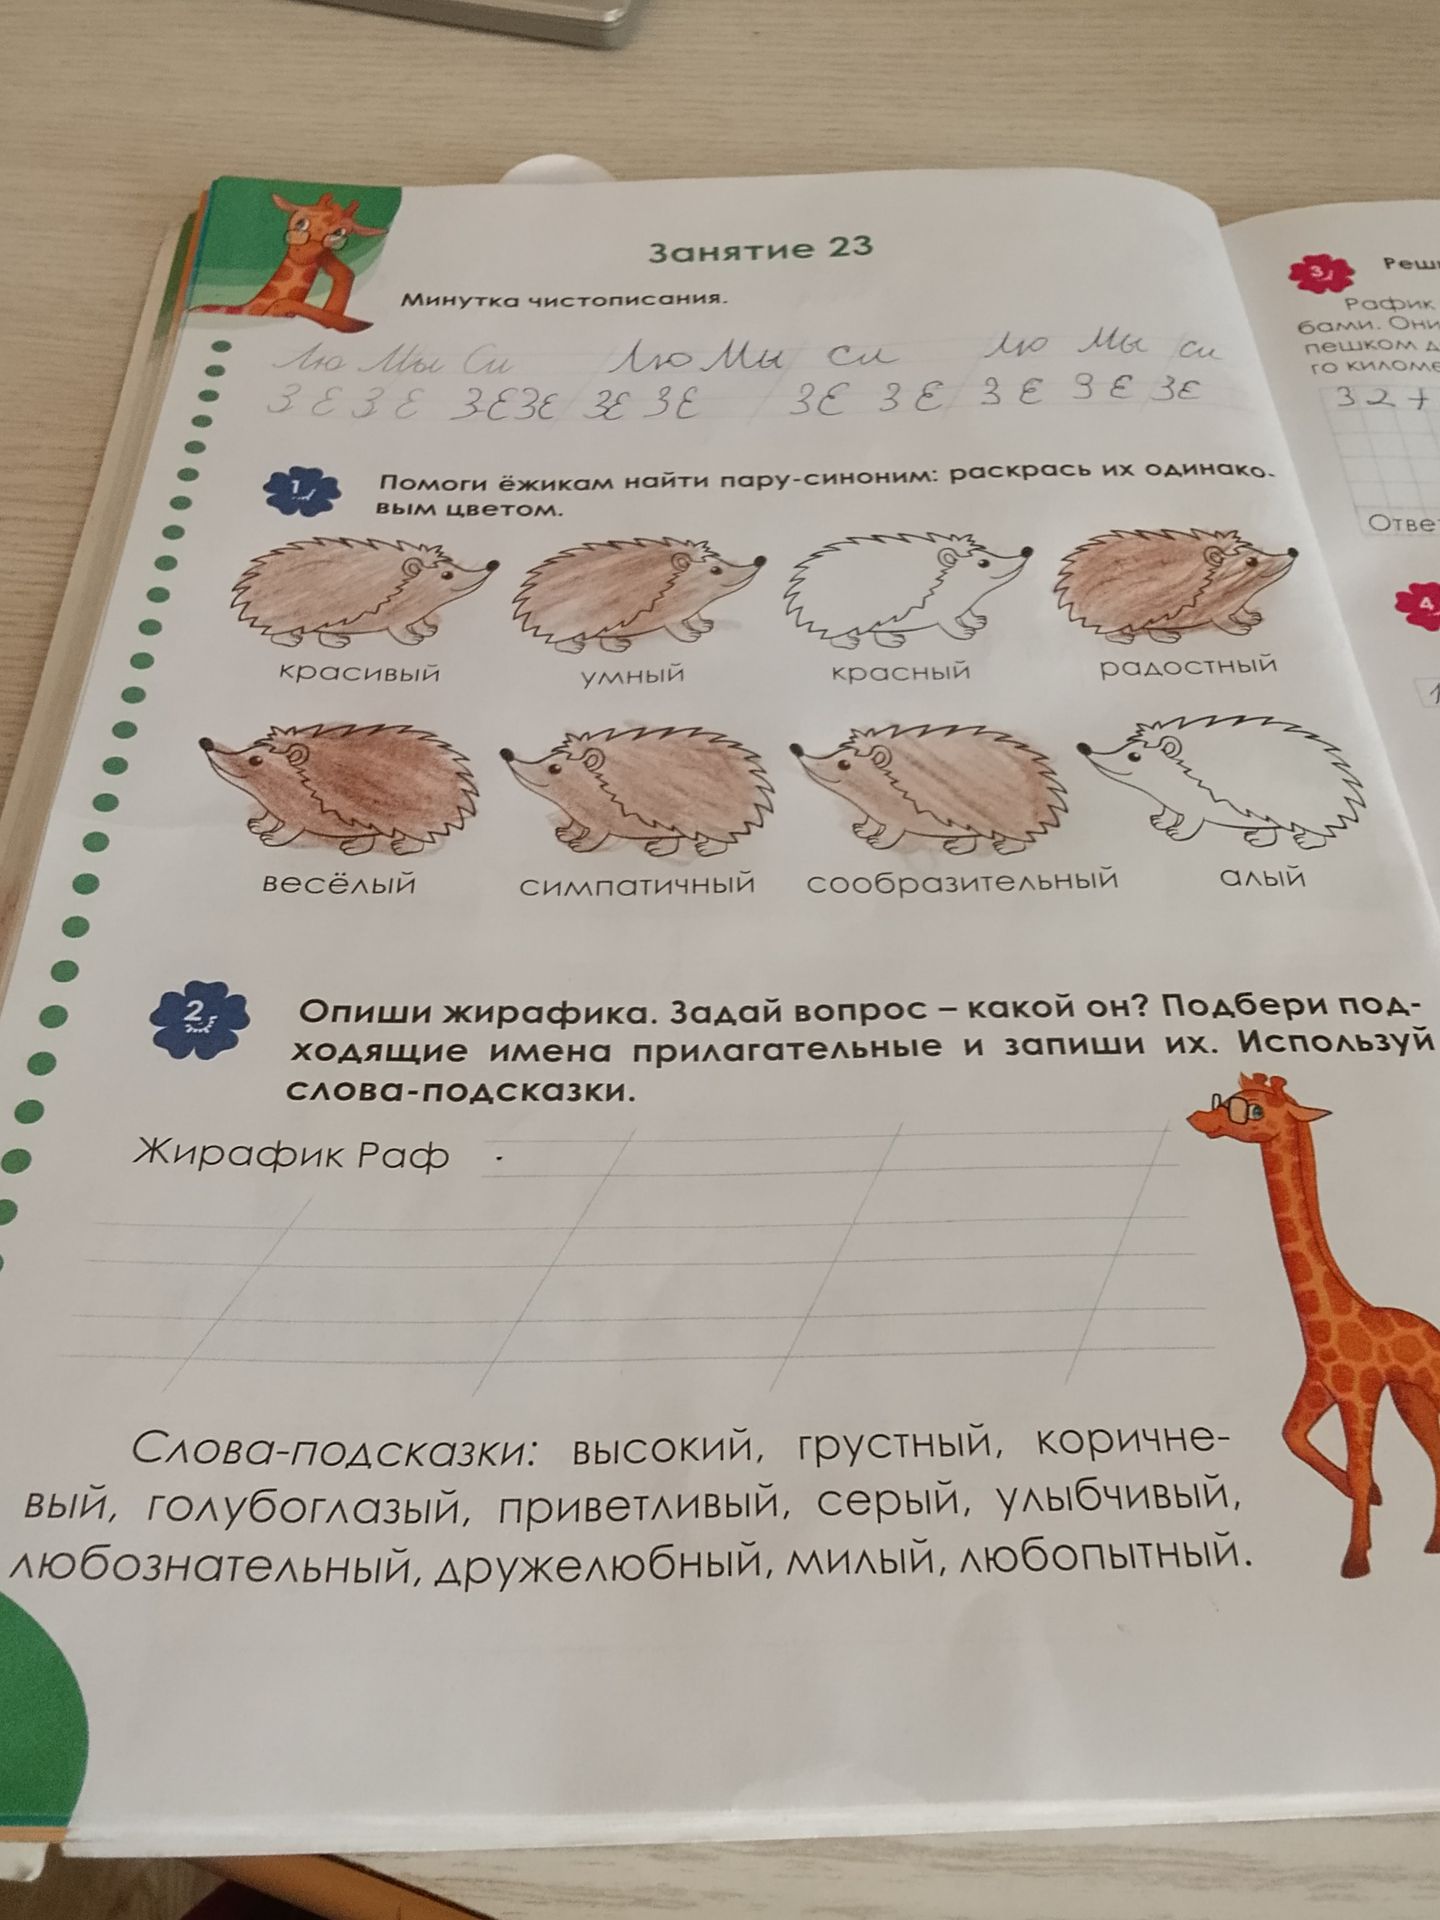 Занятие 23
Минутка чистописания.
Лю Мы Си Лю Мы си Лю Мы си
З Е З Е З Е З Е З Е З Е З Е З Е З Е З Е З Е
1
Помоги ёжикам найти пару-синоним: раскрась их одинако-
вым цветом.
красивый умный красный радостный
весёлый симпатичный сообразительный алый
2
Опиши жирафика. Задай вопрос – какой он? Подбери под-
ходящие имена прилагательные и запиши их. Используй
слова-подсказки.
Жирафик Раф
Слова-подсказки: высокий, грустный, коричне-
вый, голубоглазый, приветливый, серый, улыбчивый,
любознательный, дружелюбный, милый, любопытный.
3
Рафик
бами. Они
пешком
32+
4